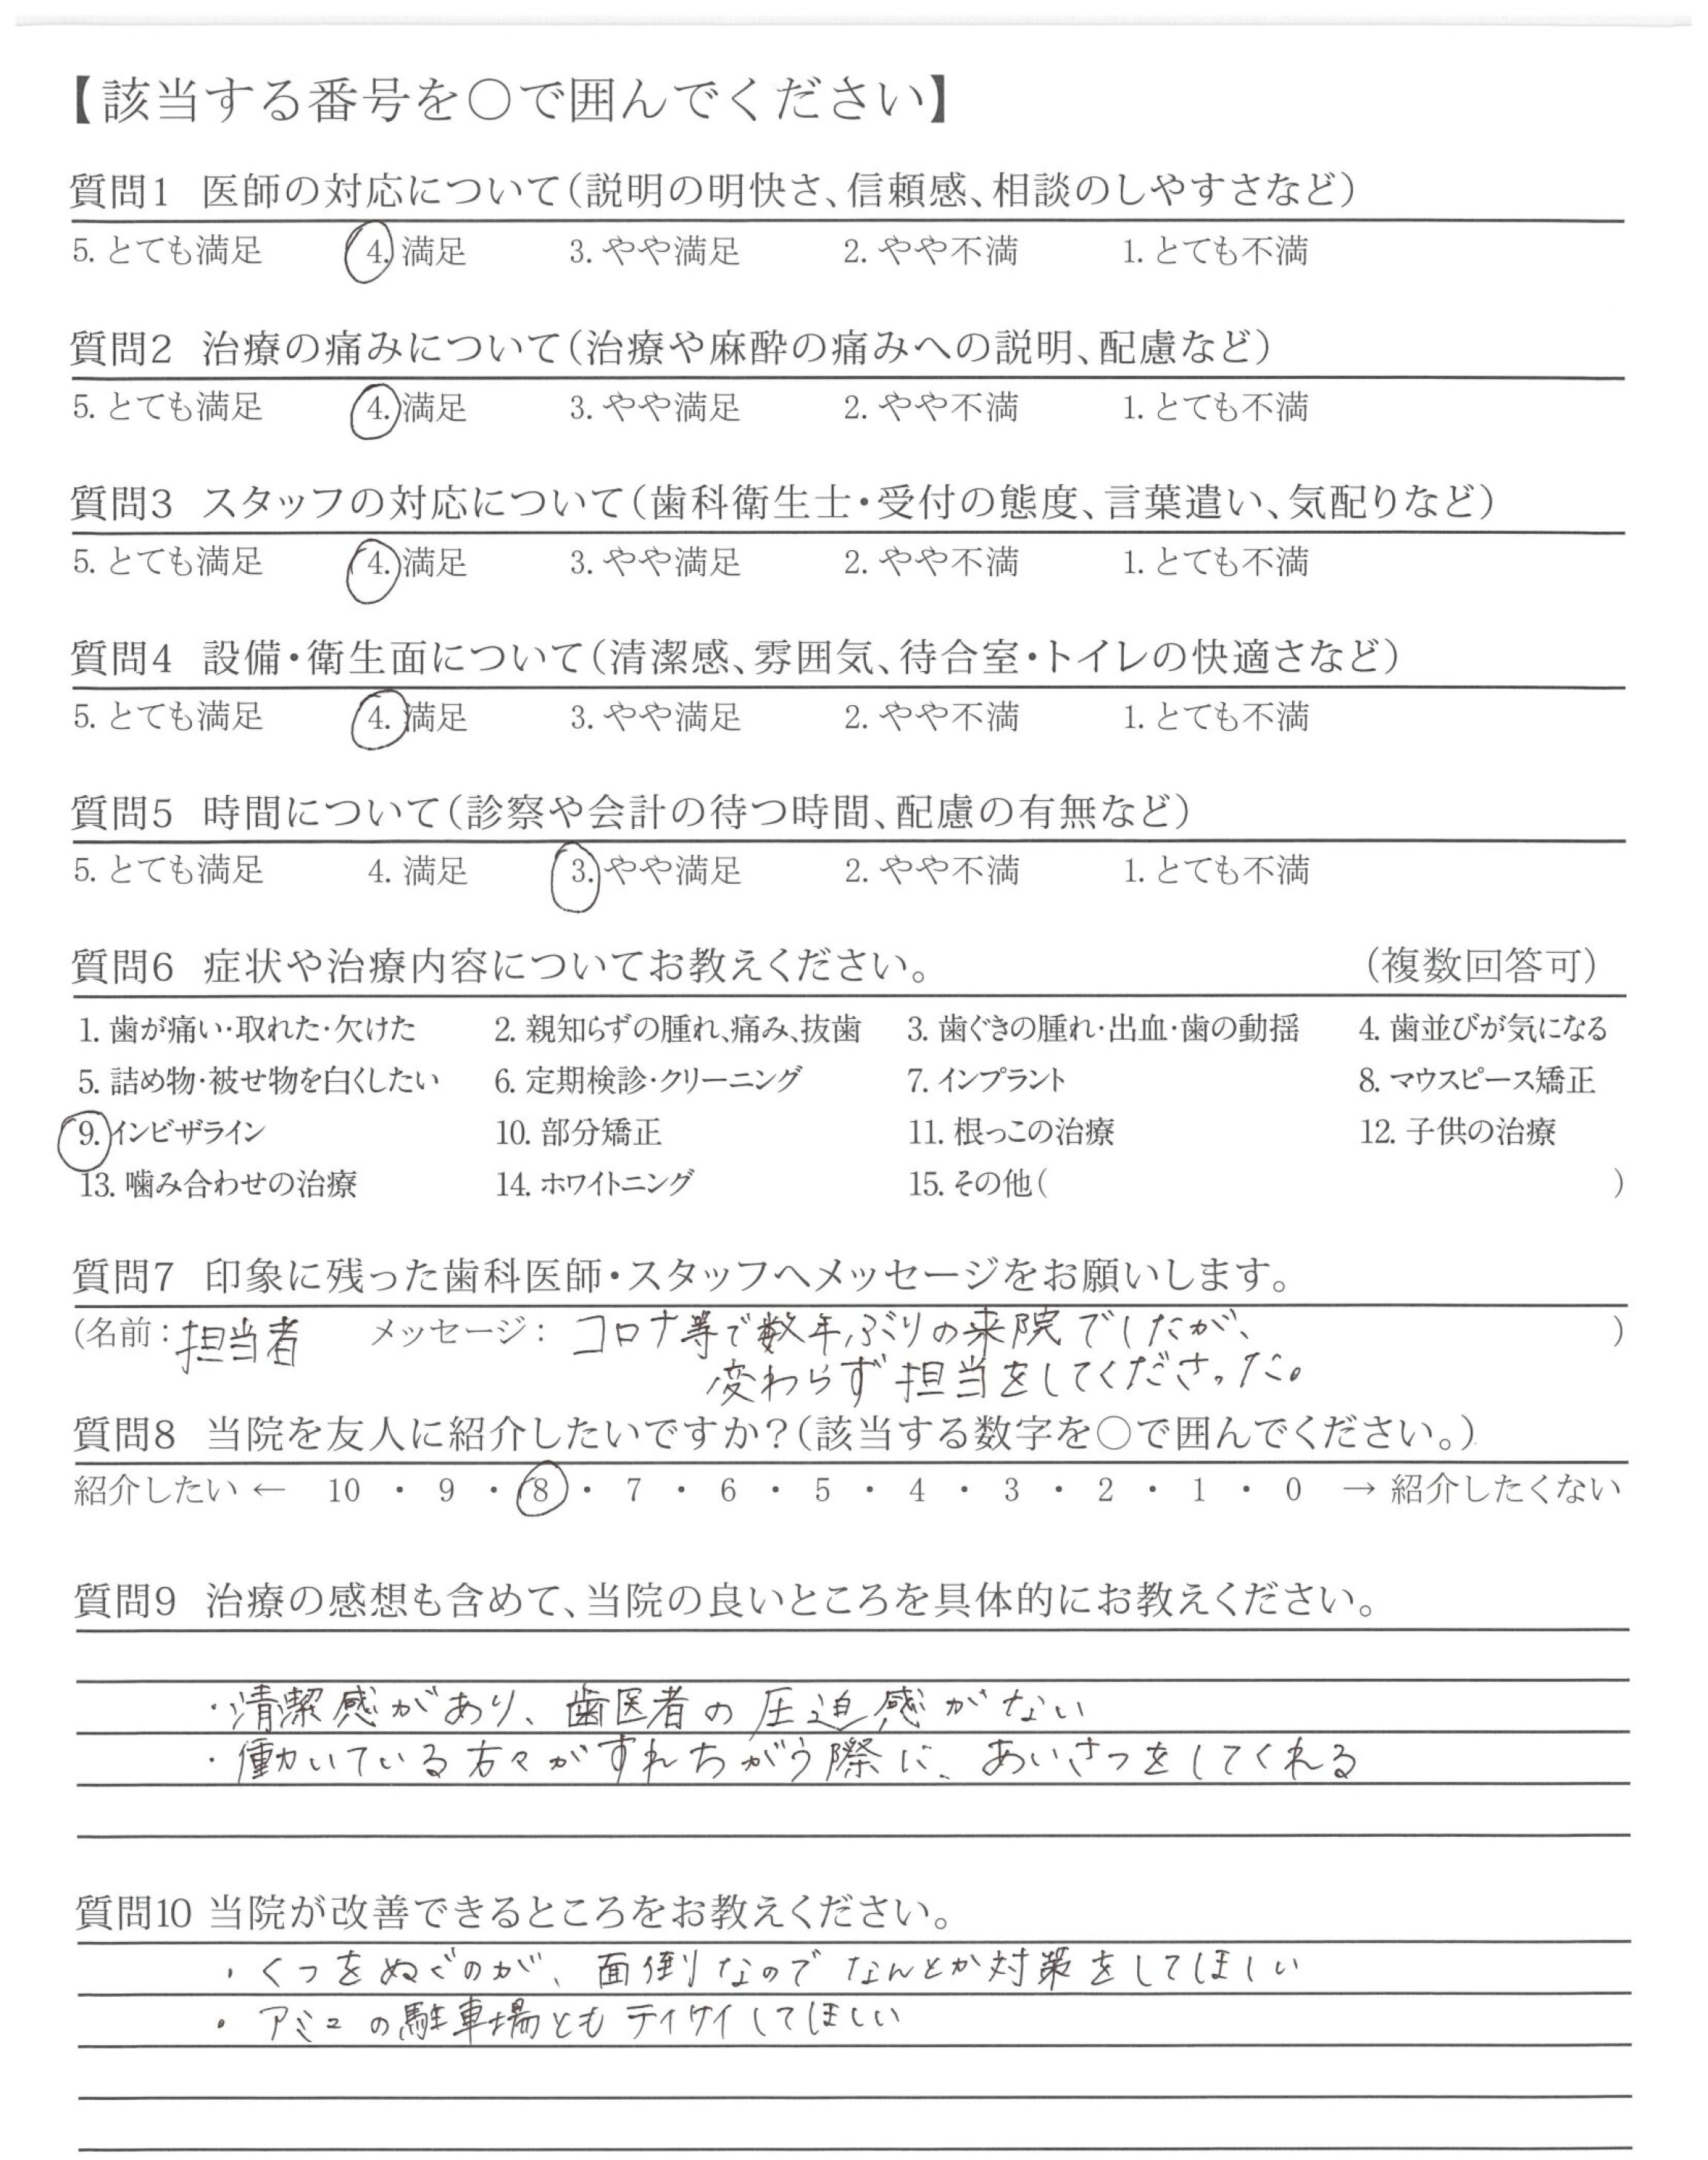 【該当する番号を○で囲んでください】
質問1 医師の対応について(説明の明快さ、信頼感、相談のしやすさなど)
5. とても満足 4. 満足 3. やや満足 2. やや不満 1. とても不満
質問2 治療の痛みについて(治療や麻酔の痛みへの説明、配慮など)
5. とても満足 4. 満足 3. やや満足 2. やや不満 1. とても不満
質問3 スタッフの対応について(歯科衛生士・受付の態度、言葉遣い、気配りなど)
5. とても満足 4. 満足 3. やや満足 2. やや不満 1. とても不満
質問4 設備・衛生面について(清潔感、雰囲気、待合室・トイレの快適さなど)
5. とても満足 4. 満足 3. やや満足 2. やや不満 1. とても不満
質問5 時間について(診察や会計の待つ時間、配慮の有無など)
5. とても満足 4. 満足 3. やや満足 2. やや不満 1. とても不満
質問6 症状や治療内容についてお教えください。 (複数回答可)
1. 歯が痛い・取れた・欠けた 2. 親知らずの腫れ、痛み、抜歯 3. 歯ぐきの腫れ・出血・歯の動揺 4. 歯並びが気になる
5. 詰め物・被せ物を白くしたい 6. 定期検診・クリーニング 7. インプラント 8. マウスピース矯正
9. インビザライン 10. 部分矯正 11. 根っこの治療 12. 子供の治療
13. 噛み合わせの治療 14. ホワイトニング 15. その他( )
質問7 印象に残った歯科医師・スタッフへメッセージをお願いします。
(名前：担当者 メッセージ：コロナ等で数年ぶりの来院でしたが、 )
変わらず担当をしてくださった。
質問8 当院を友人に紹介したいですか？(該当する数字を○で囲んでください。)
紹介したい ← 10 ・ 9 ・ 8 ・ 7 ・ 6 ・ 5 ・ 4 ・ 3 ・ 2 ・ 1 ・ 0 → 紹介したくない
質問9 治療の感想も含めて、当院の良いところを具体的にお教えください。
・清潔感があり、歯医者の圧迫感がない
・働いている方々がすれちがう際に、あいさつをしてくれる
質問10 当院が改善できるところをお教えください。
・くつをぬぐのが、面倒なのでなんとか対策をしてほしい
・アミュの駐車場ともテイケイしてほしい